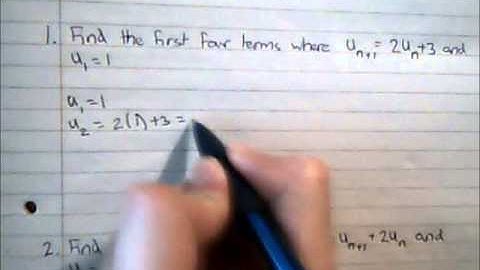 1. Find the first four terms where uₙ₊₁ = 2uₙ+3 and
u₁ = 1
u₁ = 1
u₂ = 2(1) + 3 =
2. Find uₙ₊₁ + 2uₙ and